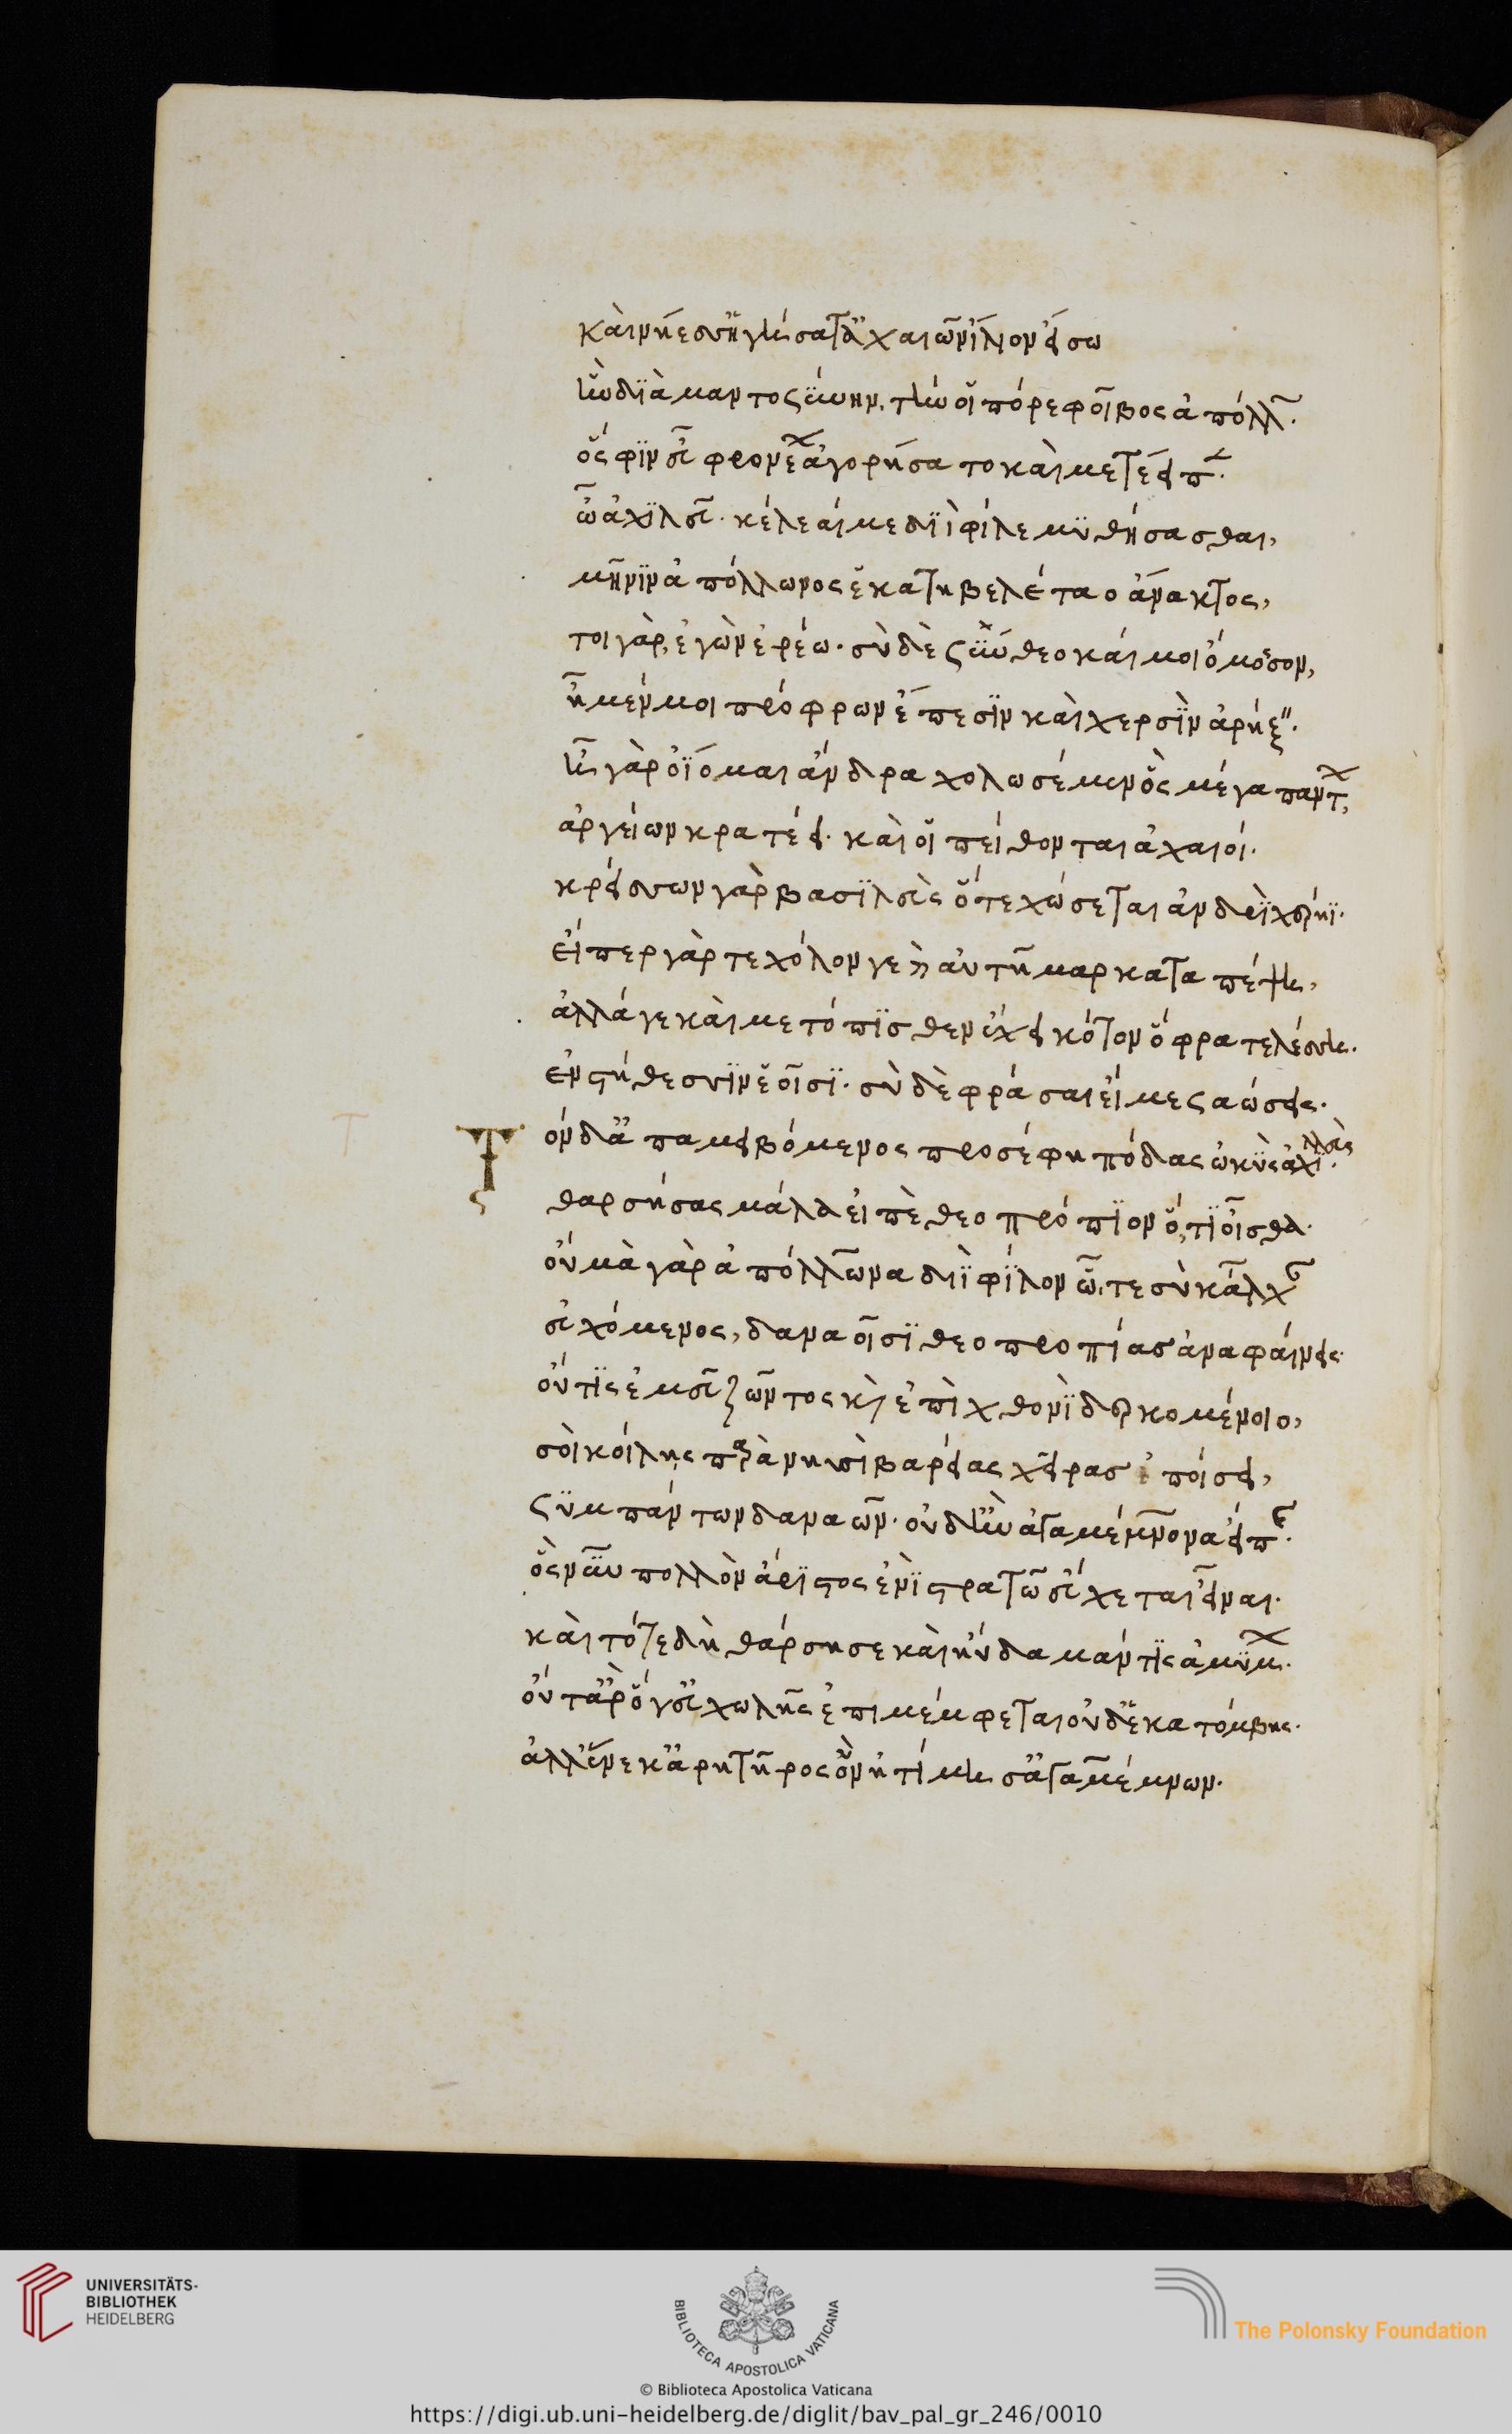 καὶ νήεσσ' ἡγήσατ' ἀχαιῶν ἴλιον εἴσω
ἣν διὰ μαντοσύνην, τήν οἱ πόρε φοῖβος ἀπόλλων·
ὅς σφιν ἐϋφρονέων ἀγορήσατο καὶ μετέειπεν·
ὦ ἀχιλεῦ· κέλεαί με διῒ φίλε μυθήσασθαι,
μῆνιν ἀπόλλωνος ἑκατηβελέταο ἄνακτος,
τοιγὰρ, ἐγὼν ἐρέω· σὺ δὲ σύνθεο καί μοι ὄμοσον,
ἦ μέν μοι πρόφρων ἔπεσιν καὶ χερσὶν ἀρήξειν·
ἦ γὰρ ὀΐομαι ἄνδρα χολωσέμεν ὃς μέγα πάντων,
ἀργείων κρατέει· καί οἱ πείθονται ἀχαιοί·
κρείσσων γὰρ βασιλεὺς ὅτε χώσεται ἀνδρὶ χέρηϊ·
εἴπερ γάρ τε χόλον γε καὶ αὐτῆμαρ καταπέψῃ,
ἀλλά γε καὶ μετόπισθεν ἔχει κότον ὄφρα τελέσσῃ·
ἐν στήθεσσιν ἑοῖσι· σὺ δὲ φράσαι εἴ με σαώσεις·
Τὸν δ' ἀπαμειβόμενος προσέφη πόδας ὠκὺς ἀχιλλεύς·
θαρσήσας μάλα εἰπὲ θεοπρόπιον ὅ,τι οἶσθα·
οὐ μὰ γὰρ ἀπόλλωνα διῒ φίλον ᾧ,τε σὺ κάλχαν
εὐχόμενος, δαναοῖσι θεοπροπίας ἀναφαίνεις·
οὔτις ἐμεῦ ζῶντος καὶ ἐπὶ χθονὶ δερκομένοιο,
σοὶ κοίλῃς παρὰ νηυσὶ βαρείας χεῖρας ἐποίσει,
συμπάντων δαναῶν· οὐδ' ἢν ἀγαμέμνονα εἴπῃς·
ὃς νῦν πολλὸν ἄριστος ἐνὶ στρατῷ εὔχεται εἶναι·
καὶ τότε δὴ θάρσησε καὶ ηὔδα μάντις ἀμύμων·
οὔτ' ἂρ ὅγ' εὐχωλῆς ἐπιμέμφεται οὐδ' ἑκατόμβης·
ἀλλ' ἕνεκ' ἀρητῆρος ὃν ἠτίμησ' ἀγαμέμνων·
UNIVERSITÄTS-
BIBLIOTHEK
HEIDELBERG
BIBLIOTECA APOSTOLICA VATICANA
The Polonsky Foundation
© Biblioteca Apostolica Vaticana
https://digi.ub.uni-heidelberg.de/diglit/bav_pal_gr_246/0010